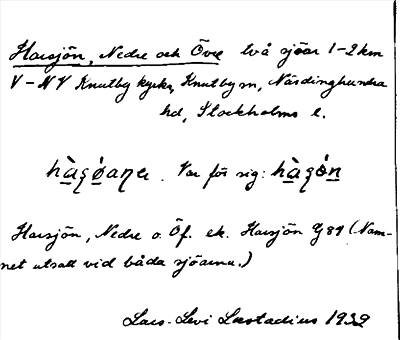 Harsjön, Nedre och Övre två sjöar 1-2 km
V-NV Knutby kyrka, Knutby sn, Närdinghundra
hd, Stockholms l.
Var för sig:
Harsjön, Nedre o. Öf. ek. Harsjön G 89 (Nam-
net utsatt vid båda sjöarna.)
Lars-Levi Læstadius 1939